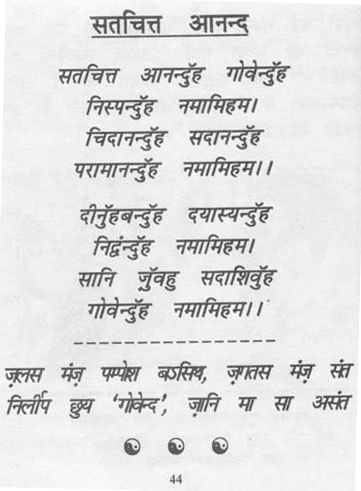 सतचित्त आनन्द
सतचित्त आनन्दुॅह गोवेन्दुॅह
निस्पन्दुॅह नमामिहम।
चिदानन्दुॅह सदानन्दुॅह
परामानन्दुॅह नमामिहम।।
दीनुॅहबन्दुॅह दयास्यन्दुॅह
निद्वंन्दुॅह नमामिहम।
सानि जुॅवहु सदाशिवुॅह
गोवेन्दुॅह नमामिहम।।
ज़लस मंज़ पम्पोश बऽसिथ, ज़गतस मंज़ संत
निर्लीप छुय 'गोवेन्द', ज़ानि मा सा असंत
44